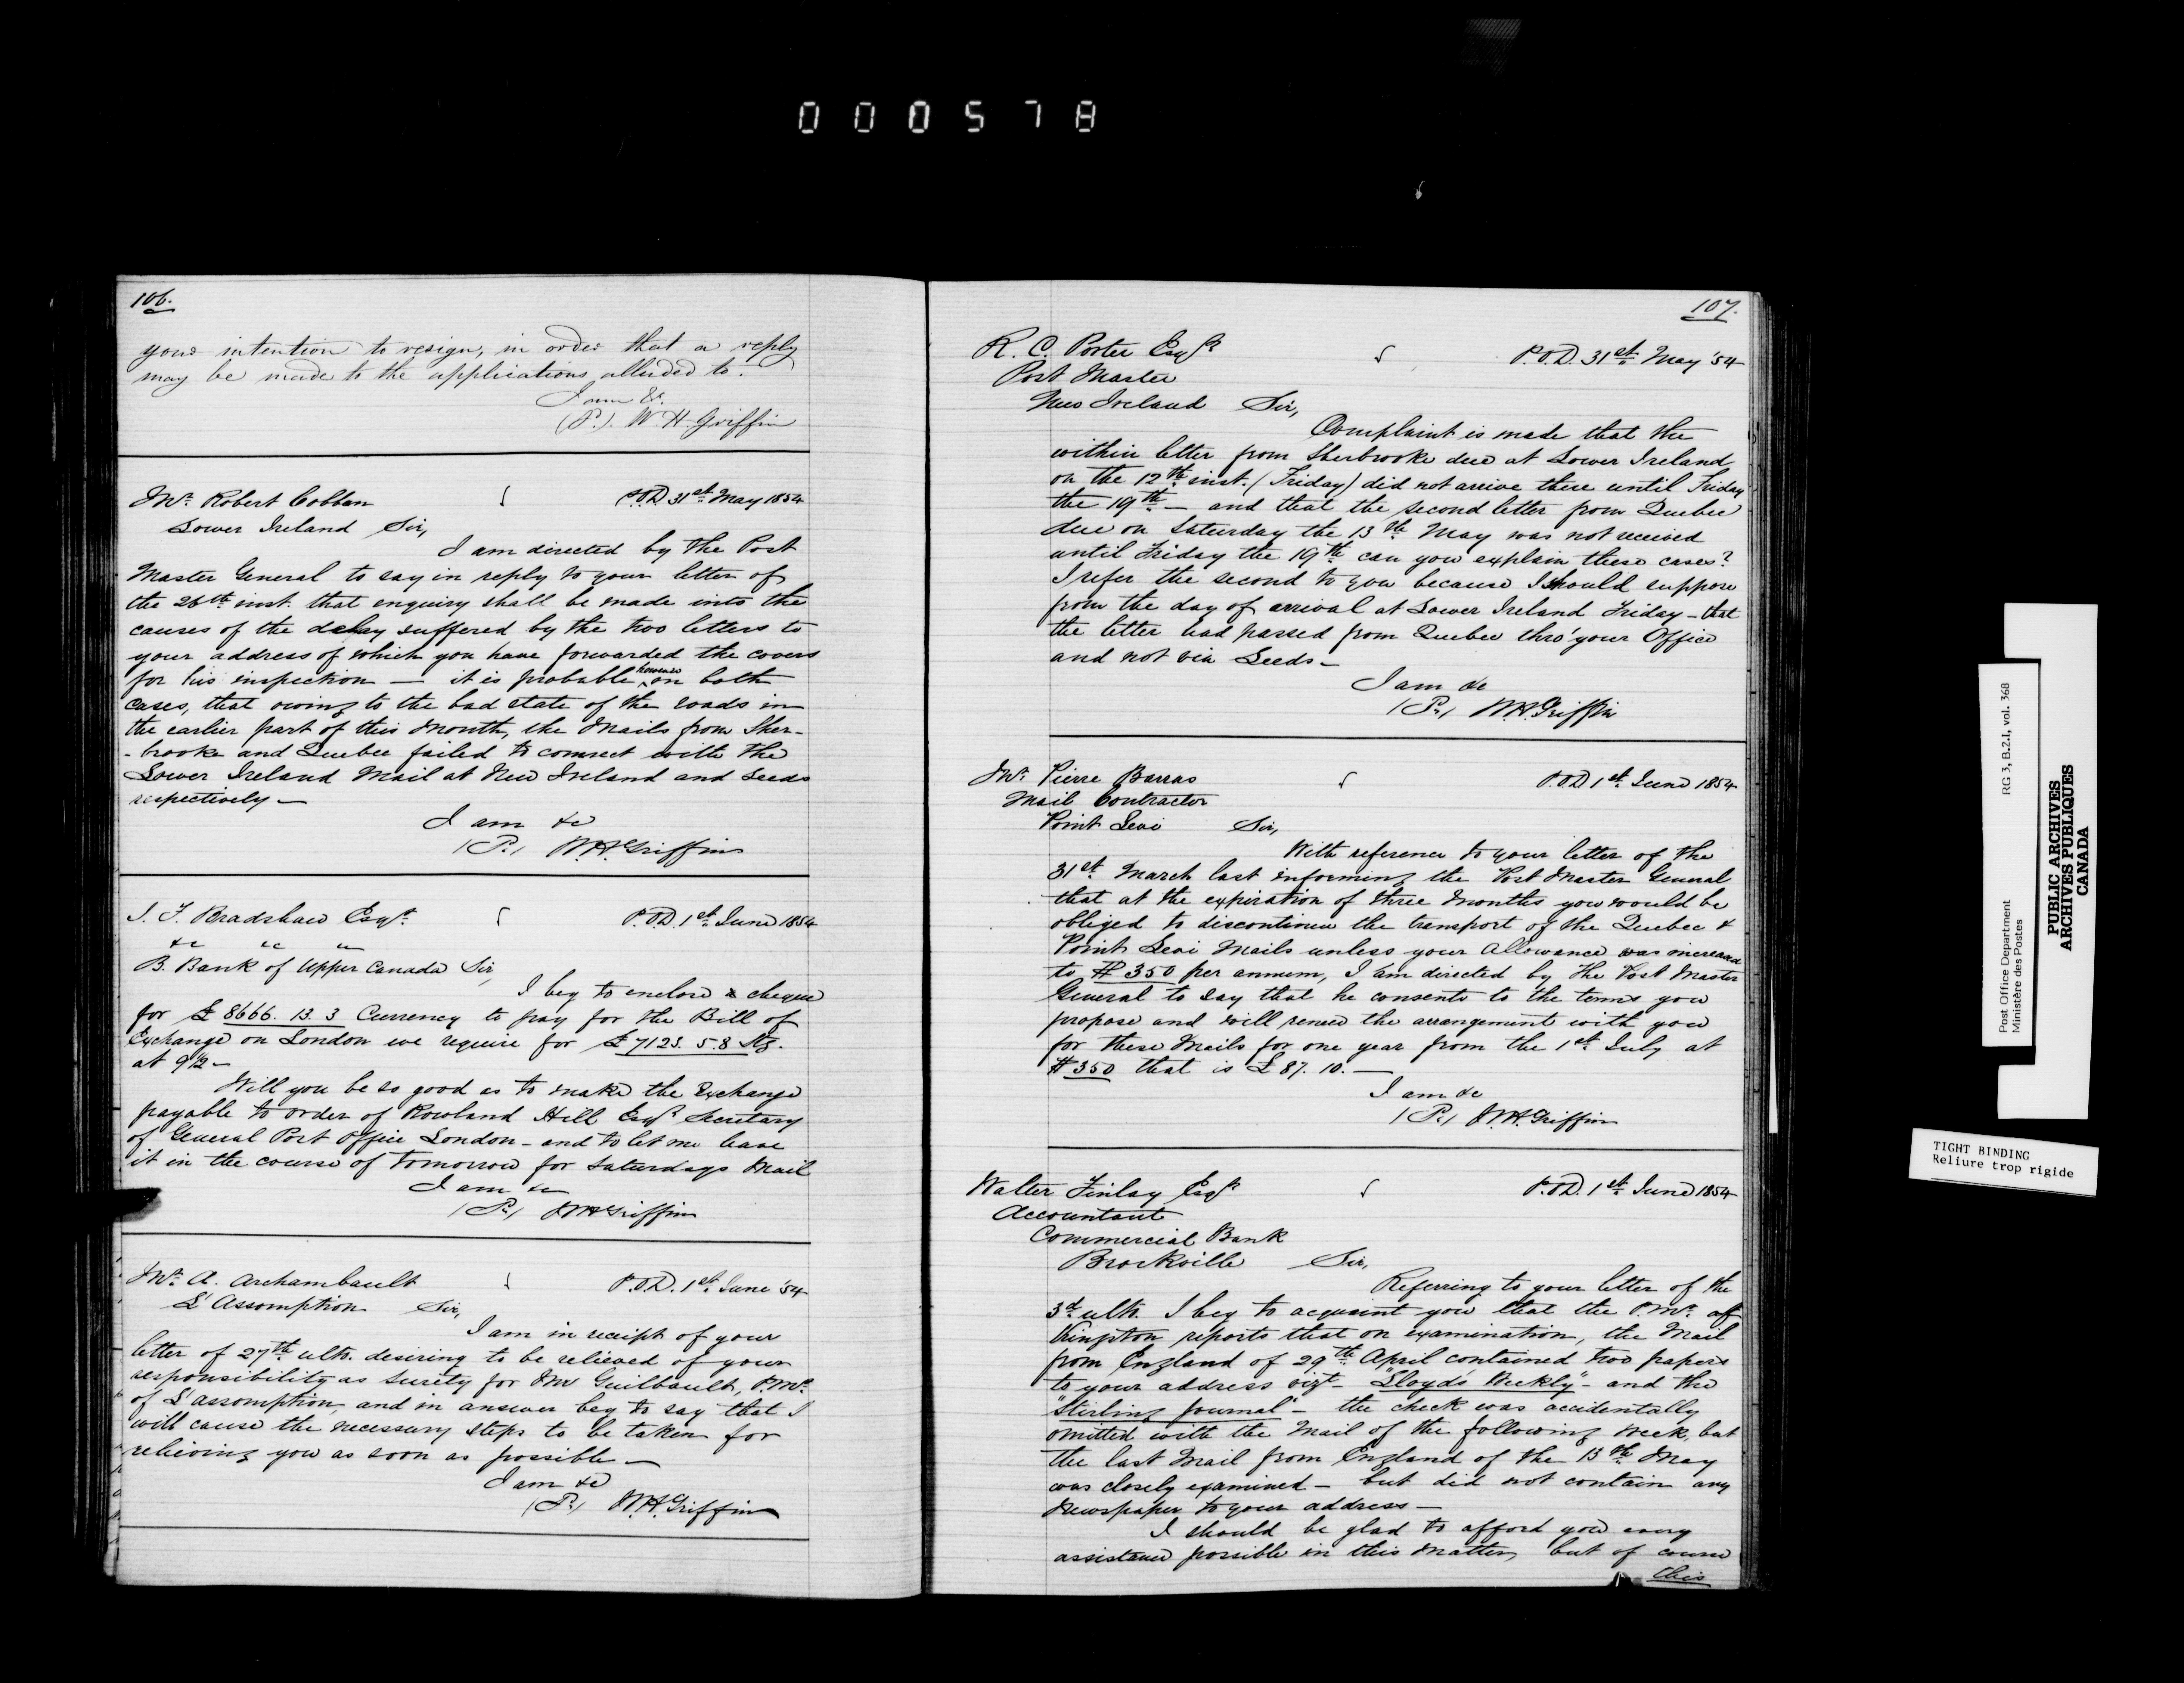 000578
106.
your intention to resign, in order that a reply
may be made to the applications alluded to.
I am &c.
(P.). W. H. Griffin
Mr. Robert Cobban
P.O.D. 31st May 1854
Lower Ireland Sir,
I am directed by the Post
Master General to say in reply to your letter of
the 26th inst. that enquiry shall be made into the
causes of the delay suffered by the two letters to
your address of which you have forwarded the covers
for his inspection — it is probable however on both
cases, that owing to the bad state of the roads in
the earlier part of this month, the Mails from Sher-
-brooke and Quebec failed to connect with the
Lower Ireland Mail at New Ireland and Leeds
respectively —
I am &c
(P.) W.H. Griffin
J. F. Bradshaw Esqr.
P.O.D. 1st June 1854
&c &c &c
B. Bank of Upper Canada Sir,
I beg to enclose a cheque
for £ 8666. 13. 3 Currency to pay for the Bill of
Exchange on London we require for £ 7123. 5.8 Stg.
at 9 1/2 —
Will you be so good as to make the Exchange
payable to order of Rowland Hill Esqr. Secretary
of General Post Office London — and to let me have
it in the course of tomorrow for Saturdays Mail
I am &c
(P.) W.H. Griffin
Mr. A. Archambault
P.O.D. 1st June '54
L'Assomption Sir,
I am in receipt of your
letter of 27th ulto. desiring to be relieved of your
responsibility as surety for Mr Guilbault, P.Mr.
of L'assomption, and in answer beg to say that I
will cause the necessary steps to be taken for
relieving you as soon as possible —
I am &c
(P.) W.H. Griffin
107.
R. C. Porter Esqr.
P.O.D. 31st May '54
Post Master
New Ireland Sir,
Complaint is made that the
within letter from Sherbrooke due at Lower Ireland
on the 12th inst. (Friday) did not arrive there until Friday
the 19th — and that the second letter from Quebec
due on Saturday the 13th May was not received
until Friday the 19th can you explain these cases?
I refer the second to you because I should suppose
from the day of arrival at Lower Ireland Friday — that
the letter had passed from Quebec thro' your Office
and not via Leeds —
I am &c
(P.) W.H. Griffin
Mr. Pierre Barras
P.O.D 1st June 1854
Mail Contractor
Point Levi Sir,
With reference to your letter of the
31st March last informing the Post Master General
that at the expiration of three months you would be
obliged to discontinue the transport of the Quebec &
Point Levi Mails unless your Allowance was increased
to $ 350 per annum, I am directed by the Post Master
General to say that he consents to the terms you
propose and will renew the arrangement with you
for these Mails for one year from the 1st July at
$ 350 that is £ 87. 10. —
I am &c
(P.) W.H. Griffin
Walter Finlay Esqr.
P.O.D. 1st June 1854
Accountant
Commercial Bank
Brockville Sir,
Referring to your letter of the
3d. ulto. I beg to acquaint you that the P.Mr. of
Kingston reports that on examination, the Mail
from England of 29th April contained two papers
to your address vizt — "Lloyd's Weekly" — and the
"Stirling Journal" — the check was accidentally
omitted with the Mail of the following week, but
the last Mail from England of the 13th May
was closely examined — but did not contain any
Newspaper to your address —
I should be glad to afford you every
assistance possible in this matter, but of course
this
Post Office Department RG 3, B.2.I, vol. 368
Ministère des Postes
PUBLIC ARCHIVES
ARCHIVES PUBLIQUES
CANADA
TIGHT BINDING
Reliure trop rigide